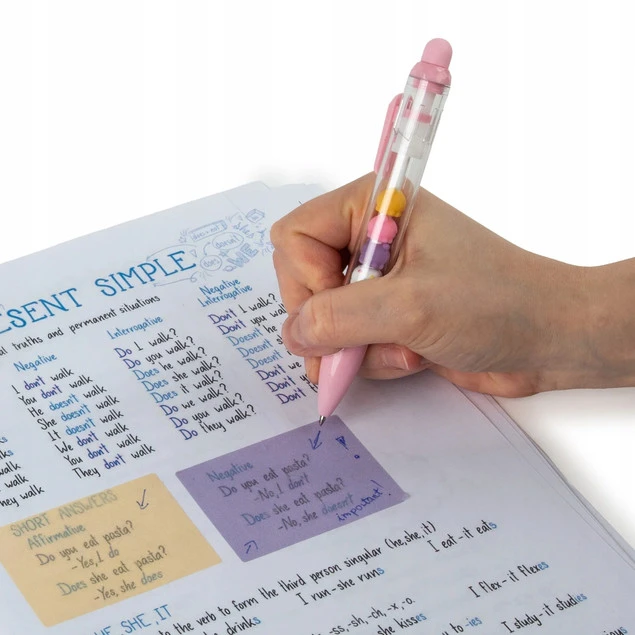 ESENT SIMPLE
doesn't
does
truths and permanent situations
Negative
I don't walk
You don't walk
He doesn't walk
She doesn't walk
It doesn't walk
We don't walk
You don't walk
They don't walk
walk
walk
they walk
Interrogative
Do I walk?
Do you walk?
Does he walk?
Does she walk?
Does it walk?
Do we walk?
Do you walk?
Do they walk?
Negative
Interrogative
Don't I walk?
Don't you walk?
Doesn't
Doesn't
Doesn't
Don't
Don't
Don't
SHORT ANSWERS
Affirmative
Do you eat pasta?
-Yes, I do
Does she eat pasta?
-Yes, she does
Negative
Do you eat pasta?
-No, I don't
Does she eat pasta?
-No, she doesn't
important!
HE, SHE, IT
to the verb to form the third person singular (he, she, it)
I run-she runs
I eat-it eats
drinks
-ss, -sh, -ch, -x, -o.
I flex-it flexes
kisses
to -ies
I study-it studies